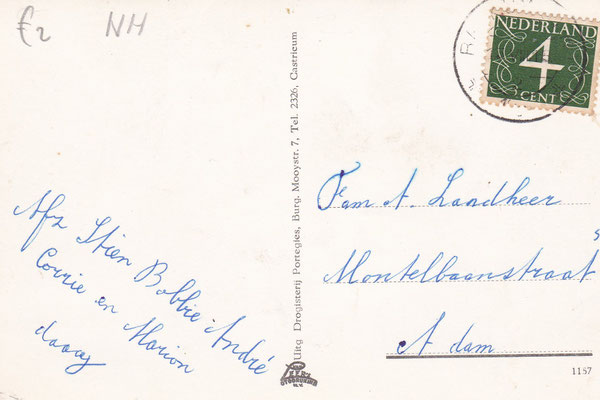 €2 NH
NEDERLAND
4
CENT
Afz Stien Bobbie André
Corrie en Marion
daaag
Uitg Drogisterij Portegies, Burg. Mooystr. 7, Tel. 2326, Castricum
Fam A. Landheer
Montelbaanstraat
A dam
1157